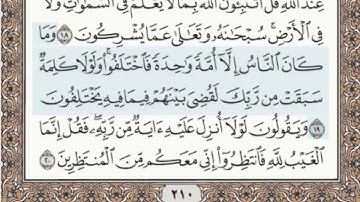 عِندَ ٱللَّهِ قُلْ أَتُنَبِّـُٔونَ ٱللَّهَ بِمَا لَا يَعْلَمُ فِى ٱلسَّمَٰوَٰتِ وَلَا
فِى ٱلْأَرْضِ ۚ سُبْحَٰنَهُۥ وَتَعَٰلَىٰ عَمَّا يُشْرِكُونَ ١٨ وَمَا
كَانَ ٱلنَّاسُ إِلَّآ أُمَّةً وَٰحِدَةً فَٱخْتَلَفُوا۟ ۚ وَلَوْلَا كَلِمَةٌ
سَبَقَتْ مِن رَّبِّكَ لَقُضِىَ بَيْنَهُمْ فِيمَا فِيهِ يَخْتَلِفُونَ
١٩ وَيَقُولُونَ لَوْلَآ أُنزِلَ عَلَيْهِ ءَايَةٌ مِّن رَّبِّهِۦ ۖ فَقُلْ إِنَّمَا
ٱلْغَيْبُ لِلَّهِ فَٱنتَظِرُوٓا۟ إِنِّى مَعَكُم مِّنَ ٱلْمُنتَظِرِينَ ٢٠
٢١٠